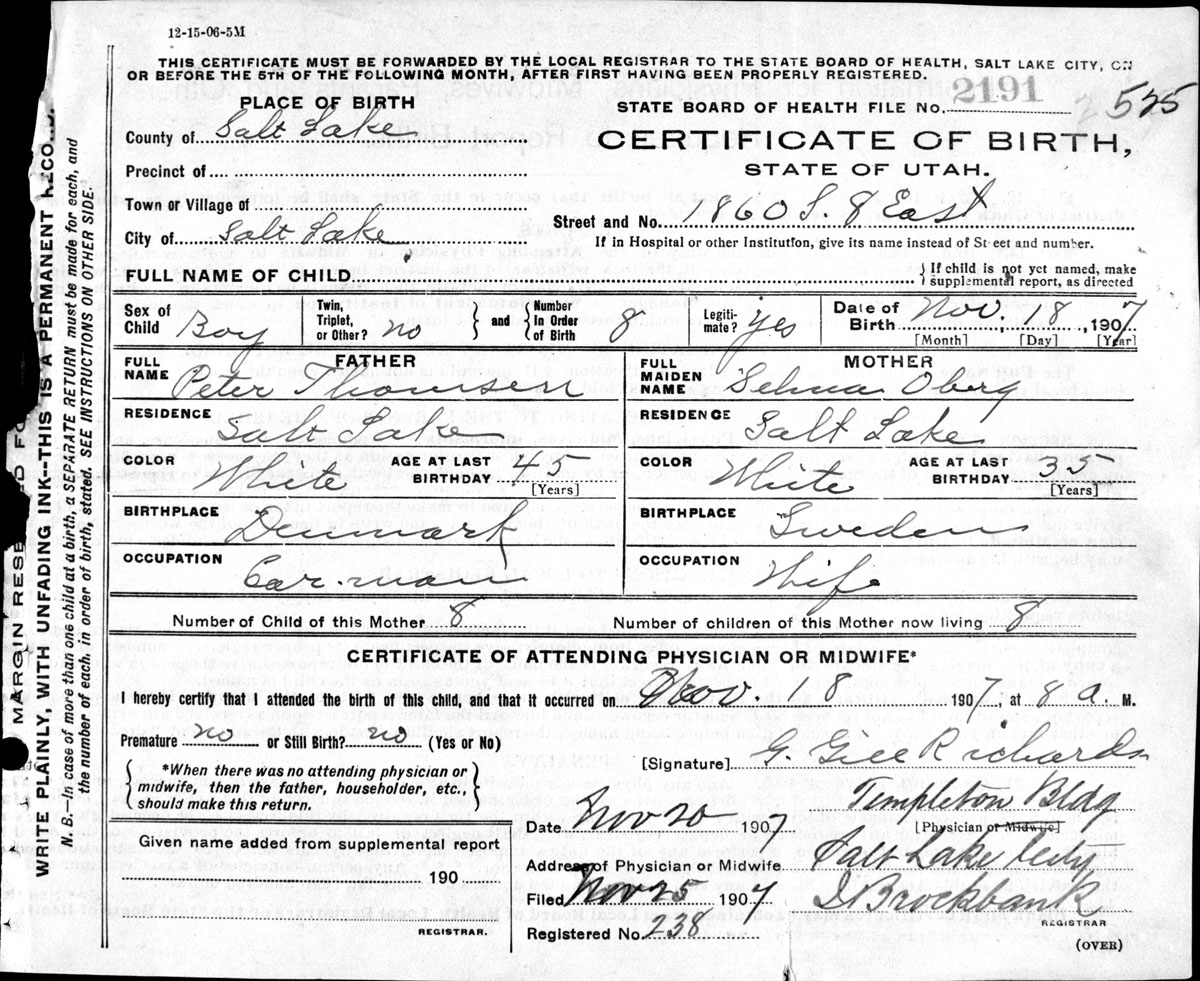 12-15-06-5M
THIS CERTIFICATE MUST BE FORWARDED BY THE LOCAL REGISTRAR TO THE STATE BOARD OF HEALTH, SALT LAKE CITY, ON
OR BEFORE THE 5TH OF THE FOLLOWING MONTH, AFTER FIRST HAVING BEEN PROPERLY REGISTERED.
PLACE OF BIRTH
STATE BOARD OF HEALTH FILE NO. 2191 525
County of Salt Lake
CERTIFICATE OF BIRTH,
Precinct of
STATE OF UTAH.
Town or Village of
Street and No. 1860 S. 8 East
City of Salt Lake
If in Hospital or other Institution, give its name instead of Street and number.
FULL NAME OF CHILD
{ If child is not yet named, make
supplemental report, as directed
Sex of Child Boy
Twin, Triplet, or Other? no
and
Number In Order of Birth 8
Legiti-mate? Yes
Date of Birth Nov. 18, 1907
[Month] [Day] [Year]
FATHER
FULL NAME Peter Thomsen
MOTHER
FULL MAIDEN NAME Selma Oberg
RESIDENCE Salt Lake
RESIDENCE Salt Lake
COLOR White AGE AT LAST BIRTHDAY 45 [Years]
COLOR White AGE AT LAST BIRTHDAY 35 [Years]
BIRTHPLACE Denmark
BIRTHPLACE Sweden
OCCUPATION Car-man
OCCUPATION Wife
Number of Child of this Mother 8
Number of children of this Mother now living 8
CERTIFICATE OF ATTENDING PHYSICIAN OR MIDWIFE*
I hereby certify that I attended the birth of this child, and that it occurred on Nov. 18 1907, at 8 a. M.
Premature no or Still Birth? no (Yes or No)
[Signature] G. Gill Richards
*When there was no attending physician or
midwife, then the father, householder, etc.,
should make this return.
Templeton Bldg
[Physician or Midwife]
Date Nov 20 1907
Given name added from supplemental report
Address of Physician or Midwife Salt Lake City
190
Filed Nov 25 1907
Brockbank
REGISTRAR
REGISTRAR.
Registered No. 238
(OVER)
MARGIN RESE
WRITE PLAINLY, WITH UNFADING INK--THIS IS A PERMANENT RECO
N. B.--In case of more than one child at a birth, a SEPARATE RETURN must be made for each, and
the number of each, in order of birth, stated. SEE INSTRUCTIONS ON OTHER SIDE.